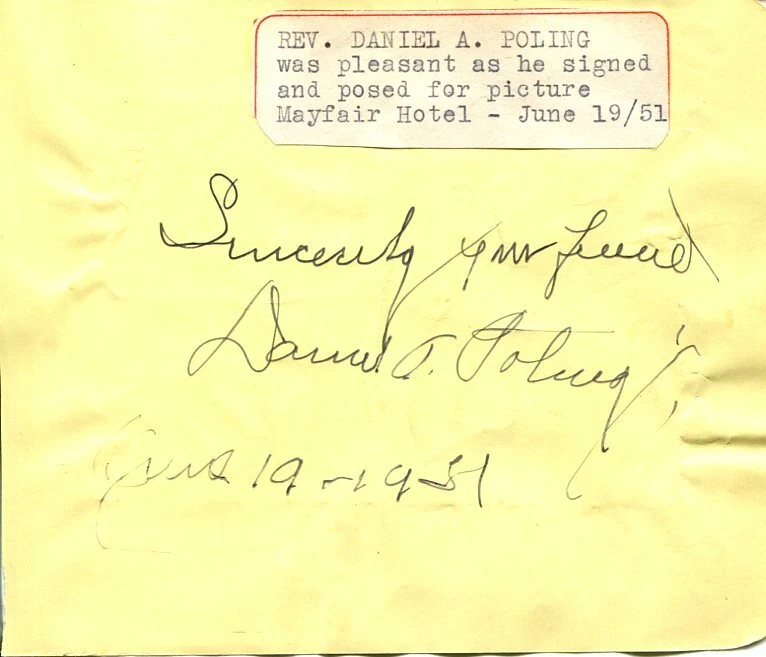 REV. DANIEL A. POLING
was pleasant as he signed
and posed for picture
Mayfair Hotel - June 19/51
Sincerely your friend
Daniel A. Poling
June 19-1951